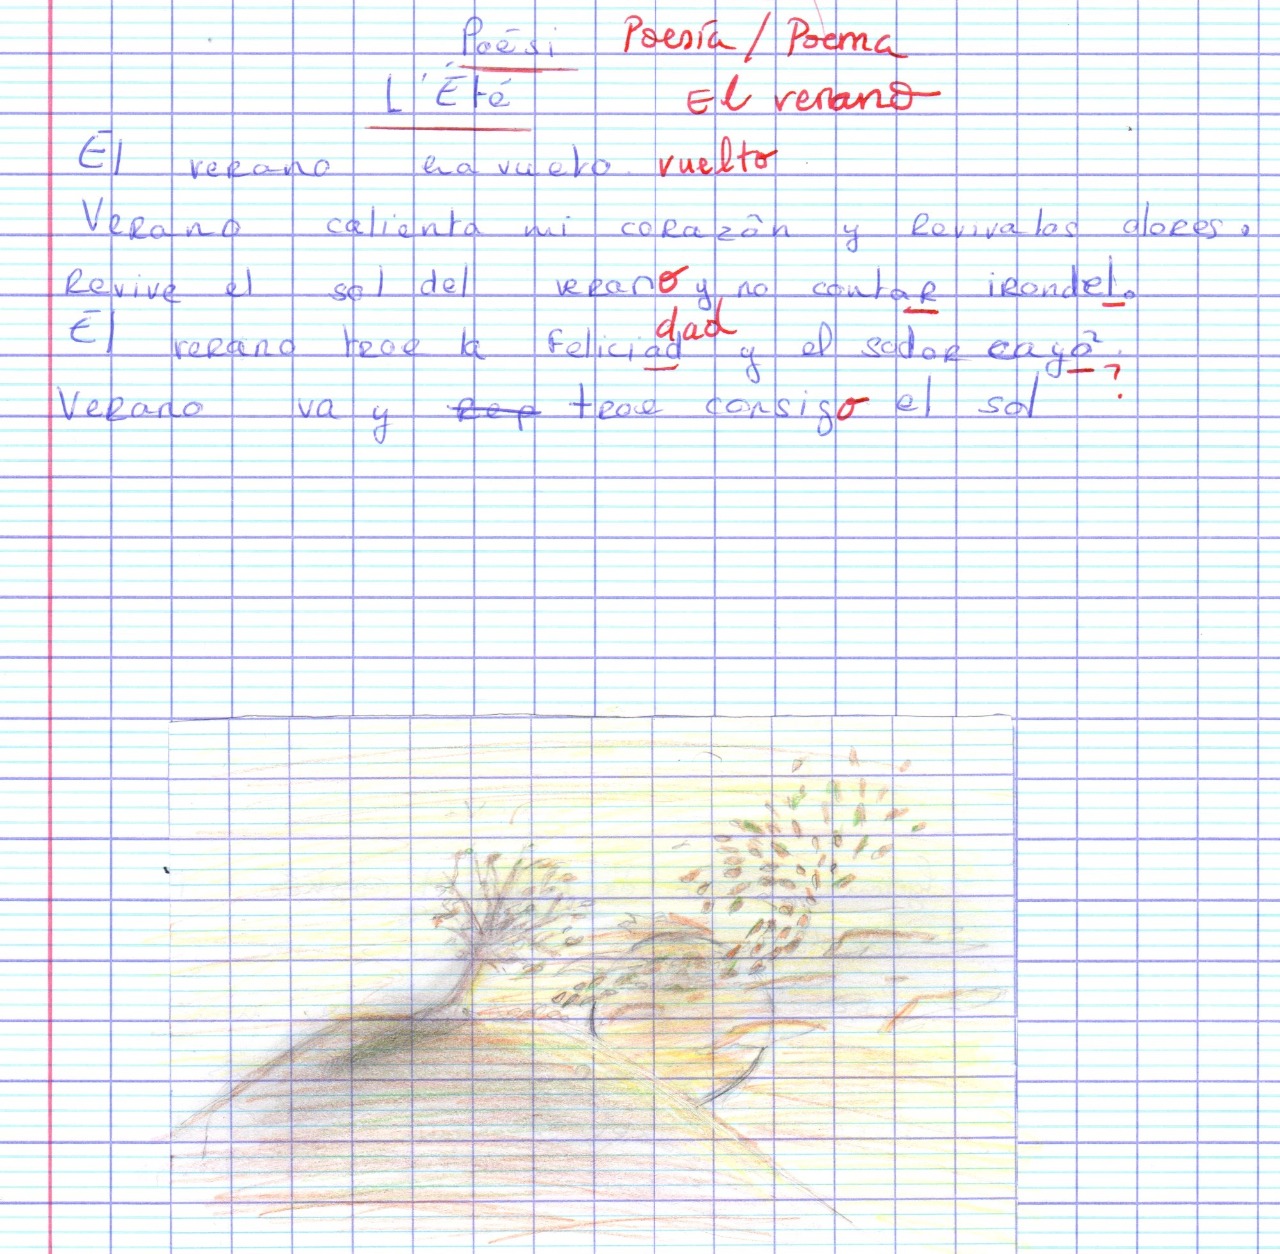 Poési Poesía / Poema
L'Été El verano
El verano ha vuelto vuelto
Verano calienta mi corazôn y Reviva las dores.
Revive el sol del verano y no contar irondel.
dad
El verano trae la feliciad y el sodor cayo
?
Verano va y trae consigo el sol